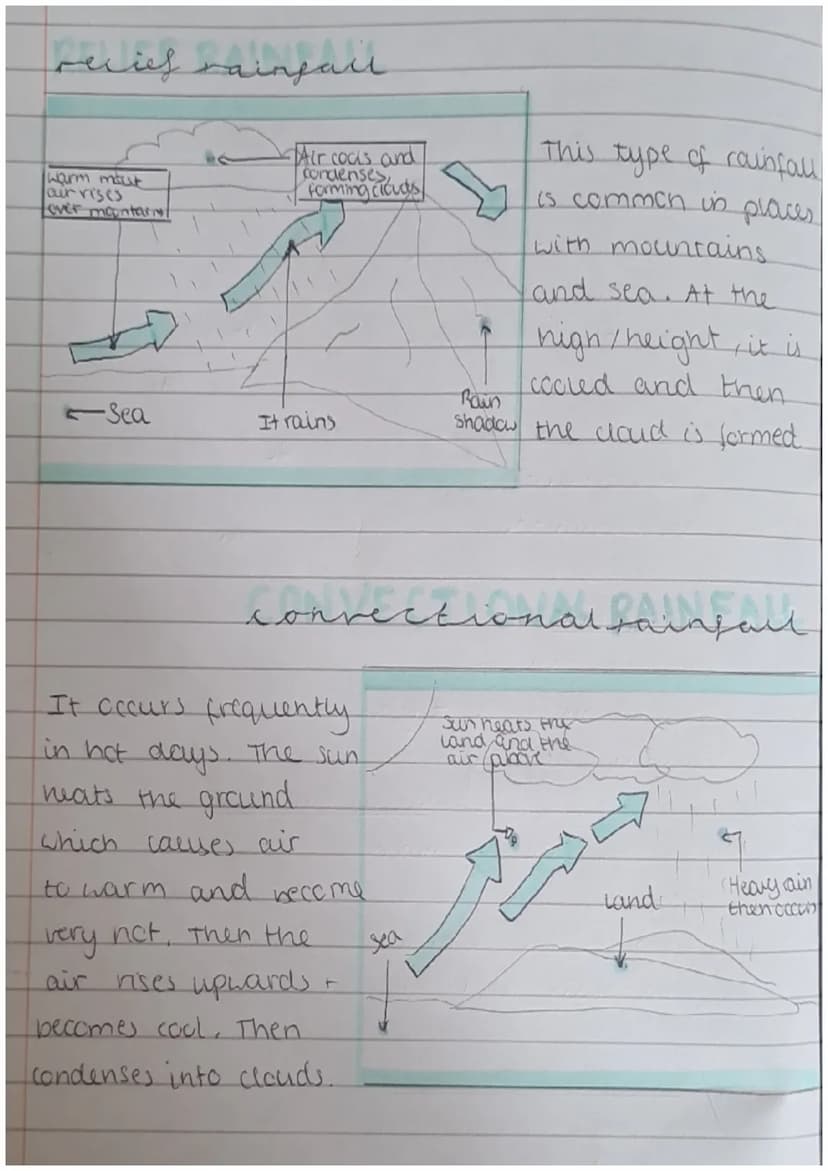 RELIEF RAINFALL
relief rainfall
Warm moist
air rises
over mountains
Air cools and
condenses,
forming clouds
← Sea
It rains
Rain
shadow
This type of rainfall
is common in places
with mountains
and sea. At the
high/height, it is
cooled and then
the cloud is formed
CONVECTIONAL RAINFALL
convectional rainfall
It occurs frequently
in hot days. The sun
heats the ground
which causes air
to warm and become
very hot. Then the
air rises upwards +
becomes cool. Then
condenses into clouds.
Sun heats the
land and the
air above
sea
Land
Heavy ain
then occurs